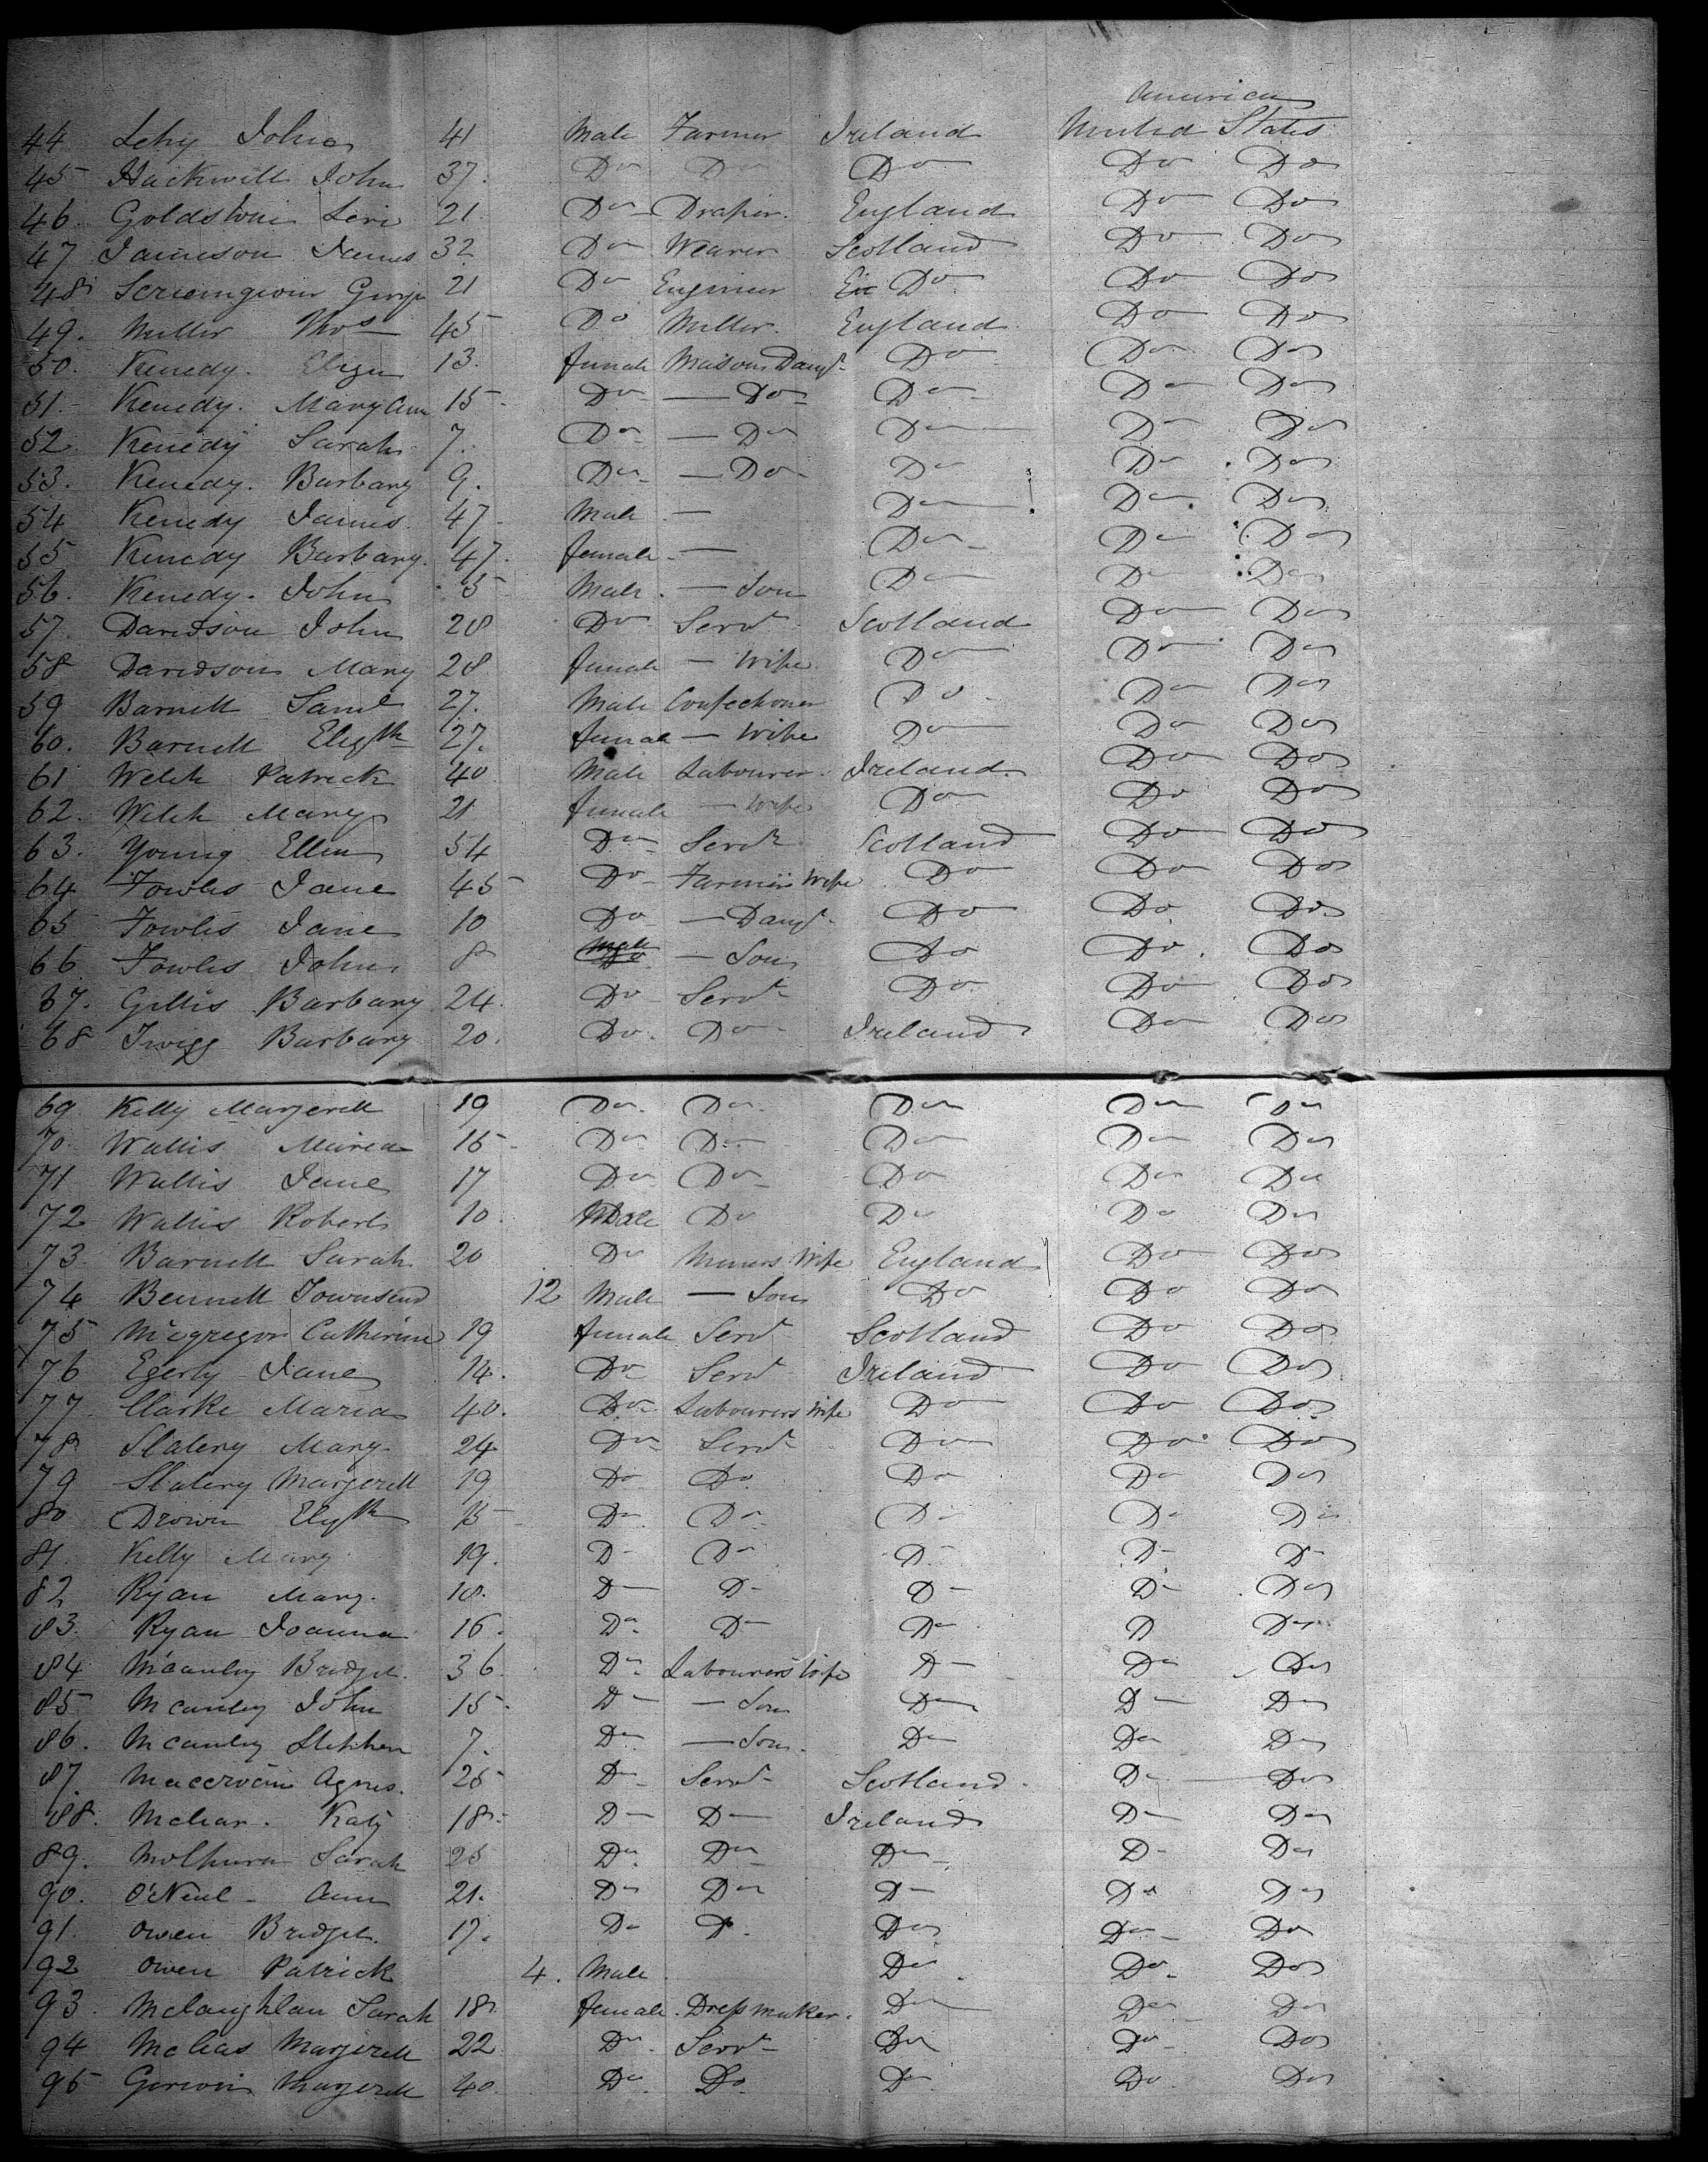 America
44 Lehy John 41 Male Farmer Ireland United States
45 Hackwill John 37. Do Do Do Do Do
46. Goldstone Levi 21 Do Draper. England Do Do
47 Jameson James 32 Do Weaver Scotland Do Do
48 Scriemgiour George 21 Do Engineer Do Do Do
49. Miller Thos 45 Do Miller. England Do Do
50. Kenedy. Eliza 13. female Masons Daugt Do Do Do
51. Kenedy. Mary Ann 15 Do — Do Do Do Do
52. Kenedy Sarah 7. Do — Do Do Do Do
53. Kenedy. Barbary 9. Do — Do Do Do Do
54 Kenedy James. 47 Male — Do Do Do
55 Kenedy Barbary. 47. female — Do Do Do
56. Kenedy. John 5 Male. — Son Do Do Do
57. Davidson John 28 Do Servt Scotland Do Do
58 Davidson Mary 28 female — Wife Do Do Do
59 Barnett Saml 27. Male Confectioner Do Do Do
60. Barnett Elizth 27. female — Wife Do Do Do
61 Welch Patrick 40 Male Labourer. Ireland. Do Do
62. Welch Mary 21 female — Wife Do Do Do
63. Young Ellen 54 Do Servt Scotland Do Do
64 Fowlis Jane 45 Do Farmers Wife Do Do Do
65 Fowlis Jane 10 Do — Daugt Do Do Do
66 Fowlis John 8 Male — Son Do Do Do
67. Gillis Barbary 24. Do Servt Do Do Do
68 Twigg Barbary 20. Do. Do Ireland Do Do
69 Kelly Margerett 19 Do Do Do Do Do
70. Wallis Mairea 16 Do Do Do Do Do
71 Wallis Jane 17 Do Do Do Do Do
72 Wallis Robert 10. Male Do Do Do Do
73 Barnett Sarah 20 Do Miners Wife England Do Do
74 Bennett Townsend 12 Male — Son Do Do Do
75 Mcgregor Catherine 19 female Servt Scotland Do Do
76 Egerty Jane 14. Do Servt Ireland Do Do
77. Clarke Maria 40. Do Labourers Wife Do Do Do
78 Slatery Mary 24 Do Servt Do Do Do
79 Slatery Margerett 19 Do Do. Do Do Do
80 Drown Elizth 15 Do Do Do Do Do
81. Kelly Mary 19. Do Do Do Do Do
82 Ryan Mary. 18. Do Do Do Do Do
83. Ryan Joanna 16. Do Do Do Do Do
84 Mcanley Bridget. 36. Do Labourers Wife Do Do Do
85 Mcanley John 15. Do — Son Do Do Do
86. Mcanley Stephen 7. Do — Son. Do Do Do
87. Agnes. 25 Do Servt Scotland. Do Do
88. Mclear. Katy 18. Do Do Ireland Do Do
89. Sarah 25 Do Do Do Do Do
90. O'Neul Ann 21. Do Do Do Do Do
91. Owen Bridget. 17. Do Do Do Do Do
92 Owen Patrick 4. Male Do Do Do
93. Mclaughlan Sarah 18. female. Dressmaker. Do Do Do
94 Margerett 22 Do Servt Do Do Do
95 Margerett 40. Do Do Do Do Do